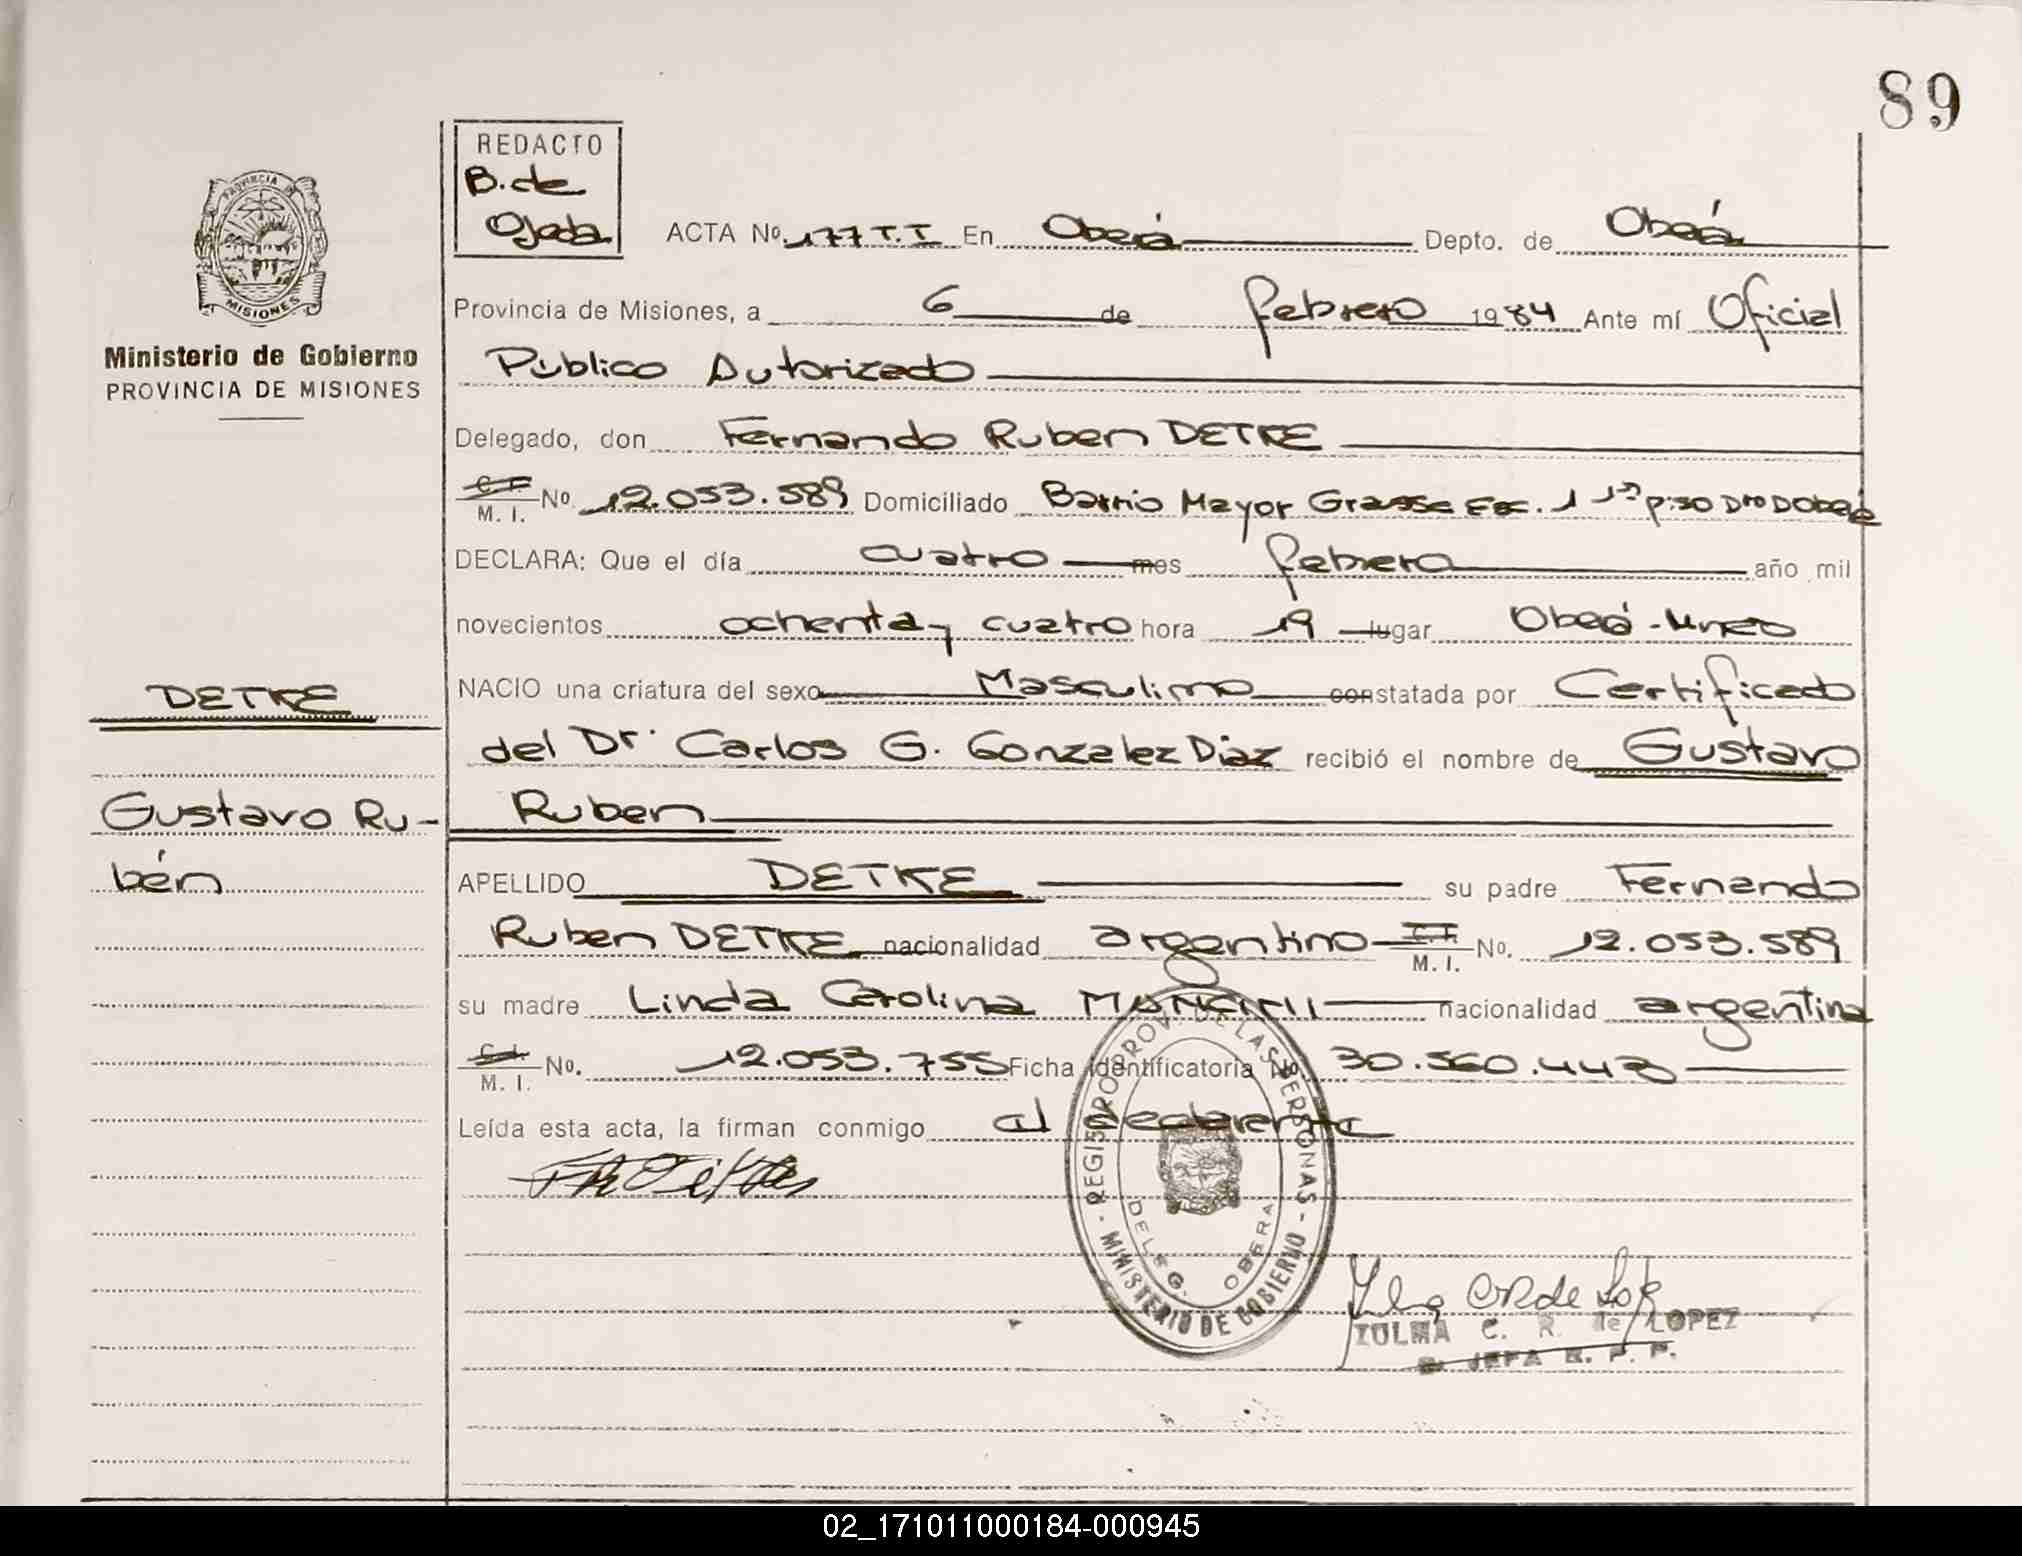 89
REDACTO
B. de
Ojeda
ACTA Nº 177 T.I En Oberá Depto. de Oberá
PROVINCIA
MISIONES
Provincia de Misiones, a 6 de febrero 1984 Ante mí Oficial
Ministerio de Gobierno
PROVINCIA DE MISIONES
Público Autorizado
Delegado, don Fernando Ruben DETKE
C. I. M. I. Nº 12.053.589 Domiciliado Barrio Mayor Grasse Esc. 1 1º piso Dto D Oberá
DECLARA: Que el día cuatro mes febrero año mil
novecientos ochenta y cuatro hora 19 lugar Oberá-Mnes
DETKE
NACIO una criatura del sexo Masculino constatada por Certificado
del Dr. Carlos G. Gonzalez Diaz recibió el nombre de Gustavo
Gustavo Ru-
Ruben
bén
APELLIDO DETKE su padre Fernando
Ruben DETKE nacionalidad argentino M. I. No. 12.053.589
su madre Linda Carolina nacionalidad argentina
C. I. M. I. No. 12.053.755 Ficha identificatoria No. 30.560.443
Leída esta acta, la firman conmigo el declarante
REGISTRO PROV. DE LAS PERSONAS - MINISTERIO DE GOBIERNO -
DELEG. OBERA
ZULMA C. R. de LOPEZ
JEFA R. P. P.
02_171011000184-000945